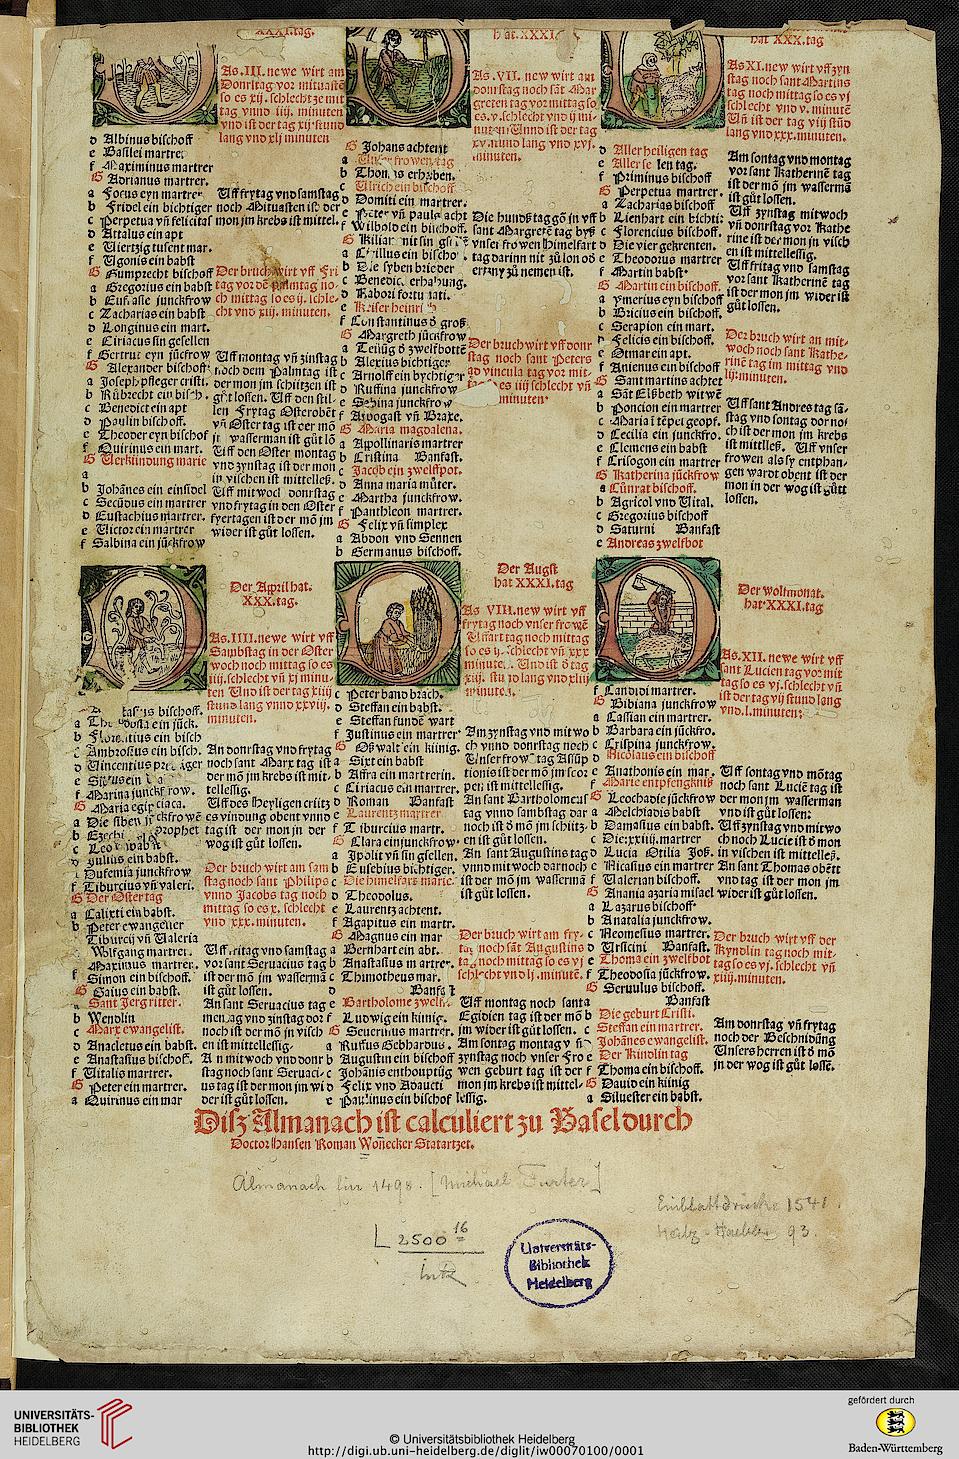 XXXI.tag.
As.III.newe wirt am
Donrstag vor mitfasten
so es xij.schlecht ze mit
tag vnno iiij. minuten
vnd ist der tag xij stund
lang vnd xlj minuten
d Albinus bischoff
e Basilei martrer
f Maximinus martrer
G Adrianus martrer.
a Focus eyn martrer
b Fridel ein bichtiger
c Perpetua vñ felicitas
d Attalus ein apt
e Viertzig tusent mar.
f Vgonis ein babst
G Gumprecht bischoff
a Gregorius ein babst
b Eufrasie junckfrow
c Zacharias ein babst
d Longinus ein mart.
e Ciriacus sin gesellen
f Gertrut eyn jückfrow
G Alexander bischoff
a Joseph pfleger cristi.
b Růbrecht ein bisch.
c Benedict ein apt
d Paulin bischoff.
e Theoder eyn bischof
f Quirinus ein mart.
G Verkündung marie
a
b Johãnes ein einsidel
c Secũdus ein martrer
d Eustachius martrer.
e Victor ein martrer
f Salbina ein jückfrow
Vff frytag vnd samstag
noch Mituasten ist der
mon jm krebs ist mittel.
Der bruch wirt vff Fri
tag vor dẽ palmtag no
ch mittag so es ij. schle
cht vnd xiij. minuten.
Vff montag vñ zinstag
noch dem Palmtag ist
der mon jm schitzen ist
gůt lossen. Vff den stil
len Frytag Osterobẽt
vñ Oster tag ist der mõ
jm wasserman ist gůt lõ
Vff den Oster montag
vnd zynstag ist der mon
in vischen ist mittelleß.
Vff mitwoch donrstag
vnd frytag in den Oster
fyertagen ist der mõ jm
wider ist gůt lossen.
hat.XXXI.
As.VII. new wirt am
donrstag noch sãt Mar
greten tag vor mittag so
es.v.schlecht vnd ij mi
nuten Vnno ist der tag
xv.stund lang vnd xvj.
minuten.
G Johans achtent
a Vnser frowen tag
b Thomas erhaben.
c Vlrich ein bischoff.
d Domiti ein martrer.
e Peter vñ pauls acht
f Wilbold ein bischoff.
G Kilian mit sin gsellẽ
a Cirillus ein bischof
b Die syben brieder
c Benedict erhabung.
d Nabori fortunati.
e Keiser heinrich
f Constantinus ð groß
G Margreth jückfrow
a Teilũg ð zwelfbottẽ
b Alexius bichtiger
c Arnolff ein bychtiger
d Ruffina junckfrow
e Sabina junckfrow
f Arbogast vñ Braxe.
G Maria magdalena.
a Appollinaris martrer
b Cristina Banfast.
c Jacob ein zwelffpot.
d Anna maria můter.
e Martha junckfrow.
f Panthleon martrer.
G Felix vñ simplex
a Abdon vnd Sennen
b Germanus bischoff.
Die hundß tag gõ in vff
sant Margretẽ tag byß
vnser frowen himelfart
tag darin nit zů lon od
ertzny zů nemen ist.
Der bruch wirt vff donr
stag noch sant Peters
ad vincula tag vor mit
tag so es iiij schlecht vñ
minuten.
hat XXX.tag
As XI.new wirt vff zyn
stag noch sant Martins
tag noch mittag so es vj
schlecht vnd v. minutẽ
Vñ ist der tag viij stũd
lang vnd xxx.minuten.
d Aller heiligen tag
e Aller selen tag.
f Priminus bischoff
G Perpetua martrer.
a Zacharias bischoff
b Lienhart ein bichti:
c Florencius bischoff.
d Die vier gekrenten.
e Theodorus martrer
f Martin babst.
G Martin ein bischoff.
a ymerius eyn bischoff
b Bricius ein bischoff.
c Serapion ein mart.
d Felicis ein bischoff.
e Otmar ein apt.
f Anienus ein bischoff
G Sant martins achtet
a Sãt Elßbeth witwẽ
b Poncion ein martrer
c Maria ĩ tẽpel geopf.
d Cecilia ein junckfro.
e Clemens ein babst
f Crisogon ein martrer
G Katherina jückfrow
a Cůnrat bischoff.
b Agricol vnd Vital.
c Gregorius bischoff
d Saturni Banfast
e Andreas zwelfbot
Am sontag vnd montag
vor sant Katherinẽ tag
ist der mõ jm wassermã
ist gůt lossen.
Vff zynstag mitwoch
vñ donrstag vor Kathe
rine ist der mon jn visch
en ist mittellesig.
Vff fritag vnd samstag
vor sant Katherinẽ tag
ist der mon jm wider ist
gůt lossen.
Der bruch wirt an mit
woch noch sant Kathe
rinẽ tag im mittag vnd
lij:minuten.
Vff sant Andres tag sã
stag vnd sontag dor no
ch ist der mon jm krebs
ist mittlleß. Vff vnser
frowen als sy entphan
gen wardt obent ist der
mon in der wog ist gůtt
lossen.
Der Aprilhat.
XXX.tag.
As.IIII.newe wirt vff
Sambstag in der Oster
woch noch mittag so es
iiij.schlecht vñ xj minu
ten Vnd ist der tag xiiij
stund lang vnno xxviij.
minuten.
bischoff.
a Theodosia ein jück.
b Florentius ein bisch
c Ambrosius ein bisch.
d Vincentius prediager
e Sixtus ein
f Marina junckfrow.
G Maria egipciaca.
a Die siben jückfrowẽ
b Ezechiel prophet
c Leo babst
d Julius ein babst.
e Eufemia junckfrow
f Tiburcius vñ valeri.
G Der Ostertag
a Calixti ein babst.
b Peter ewangelier
Tiburcij vñ Valeria
Wolfgang martrer.
Maximus martrer.
f Simon ein bischoff.
G Gaius ein babst.
a Sant Jerg ritter.
b Wendlin
c Marx ewangelist.
d Anacletus ein babst.
e Anastasius bischoff.
f Vitalis martrer.
G Peter ein martrer.
a Quirinus ein mar
An donrstag vnd frytag
noch sant Marx tag ist
der mõ jm krebs ist mit
tellesig.
Vff des heyligen critz
es vindung obent vnno
tag ist der mon jn der
wog ist gůt lossen.
Der bruch wirt am sam
stag noch sant Philips
vnno Jacobs tag noch
mittag so es x. schlecht
vnd xxx.minuten.
Vff fritag vnd samstag
vor sant Seruacius tag
ist der mõ jm wassermã
ist gůt lossen.
An sant Seruacius tag
mentag vnd zinstag dor
noch ist der mõ jn visch
en ist mittellessig.
An mitwoch vnd donr
stag noch sant Seruaci
us tag ist der mon jm wid
der ist gůt lossen.
Der Augst
hat XXXI.tag
As VIII.new wirt vff
frytag noch vnser frowẽ
Vffart tag noch mittag
so es ij. schlecht vñ xxx
minuten. Vnd ist ð tag
xiij. stund lang vnd xliij
minuten.
c Peter band bzach.
d Steffan ein babst.
e Steffan fundẽ wart
f Justinus ein martrer
G Oßwalt ein künig.
a Sixt ein babst
b Affra ein martrerin.
c Ciriacus ein martrer.
d Roman Banfast
e Laurentz martrer
f Tiburcius martr.
G Clara ein junckfrow
a Ipolit vñ sin gsellen.
b Eusebius bichtiger.
c Die himelfart marie.
d Theodolus.
e Laurentz achtent.
f Agapitus ein martr.
G Magnus ein mar
a Bernhart ein abt.
b Anastasius martrer.
c Thimotheus mar.
d Banfast
e Bartholome zwelf.
f Ludwig ein künig.
G Seuerinus martrer.
a Ruffus Gebhardus.
b Augustin ein bischoff
c Johãnis enthouptũg
d Felix vnd Adaucti
e Paulinus ein bischof
Am zynstag vnd mitwo
ch vnno donrstag noch
Vnser frowẽ tag Assũp
tionis ist der mõ jm scor
pen ist mittellesig.
An sant Bartholomeus
tag vnno sambstag dar
noch ist ð mõ jm schütz
en ist gůt lossen.
An sant Augustins tag
vnno mitwoch darnoch
ist der mõ jm wassermã
ist gůt lossen.
Der bruch wirt am fry
tag noch sãt Augustins
tag noch mittag so es vj
schlecht vnd lj.minutẽ.
Vff montag noch santa
Egidien tag ist der mõ
jm wider ist gůt lossen.
Am sontag montag vñ
zynstag noch vnser Fro
wen geburt tag ist der
mon jm krebs ist mittel
lessig.
Der wolfmonat.
hat XXXI.tag
As.XII. newe wirt vff
sant Lucien tag vor mit
tag so es vj.schlecht vñ
ist der tag vij stund lang
vnd.l.minuten:
f Candidi martrer.
G Bibiana junckfrow
a Cassian ein martrer.
b Barbara ein jückfro.
c Crispina junckfrow.
d Nicolaus ein bischoff
e Anathonis ein mar.
f Marie entpfengkniß
G Leochadie jückfrow
a Melchiadis babst
b Damasius ein babst.
c Die:xxiiij.martrer
d Lucia Otilia Jos.
e Nicasius ein martrer
f Valerian bischoff.
G Anania azaria misael
a Lazarus bischoff
b Anatalia junckfrow.
c Neomesius martrer.
d Vrsicini Banfast.
e Thoma ein zwelfbot
f Theodosia jückfrow.
G Seruulus bischoff.
Banfast
Die geburt Cristi.
Steffan ein martrer.
Johãnes ewangelist.
Der Kindlin tag
f Thoma ein bischoff.
G Dauid ein künig
a Siluester ein babst.
Vff sontag vnd mõtag
noch sant Luciẽ tag ist
der mon jm wasserman
vnd ist gůt lossen:
Vff zynstag vnd mitwo
ch noch Lucie ist ð mon
in vischen ist mittelleß.
An sant Thomas obẽtt
vnd tag ist der mon jm
wider ist gůt lossen.
Der bruch wirt vff der
Kyndlin tag noch mit
tag so es vj.schlecht vñ
xiiij.minuten.
Am donrstag vñ frytag
noch der Beschnidũng
Vnsers herren ist ð mõ
jn der wog ist gůt lossẽ.
Disz Almanach ist calculiert zu Basel durch
Doctor Hansen Roman Wonecker Statartzet.
Almanach für 1498. [Michael Furter]
Einblattdrucke 1541.
93.
L 2500 16
Universitäts-
Bibliothek
Heidelberg
UNIVERSITÄTS-
BIBLIOTHEK
HEIDELBERG
© Universitätsbibliothek Heidelberg
http://digi.ub.uni-heidelberg.de/diglit/iw00070100/0001
gefördert durch
Baden-Württemberg